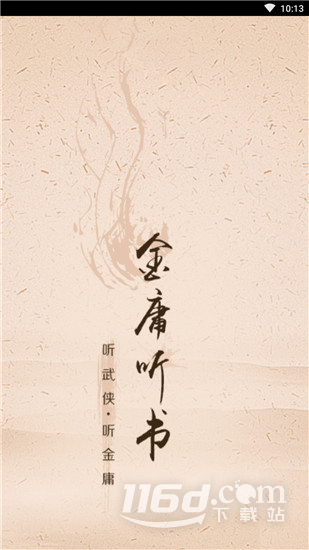 10:13
金庸听书
听武侠·听金庸
116d.com
下载站